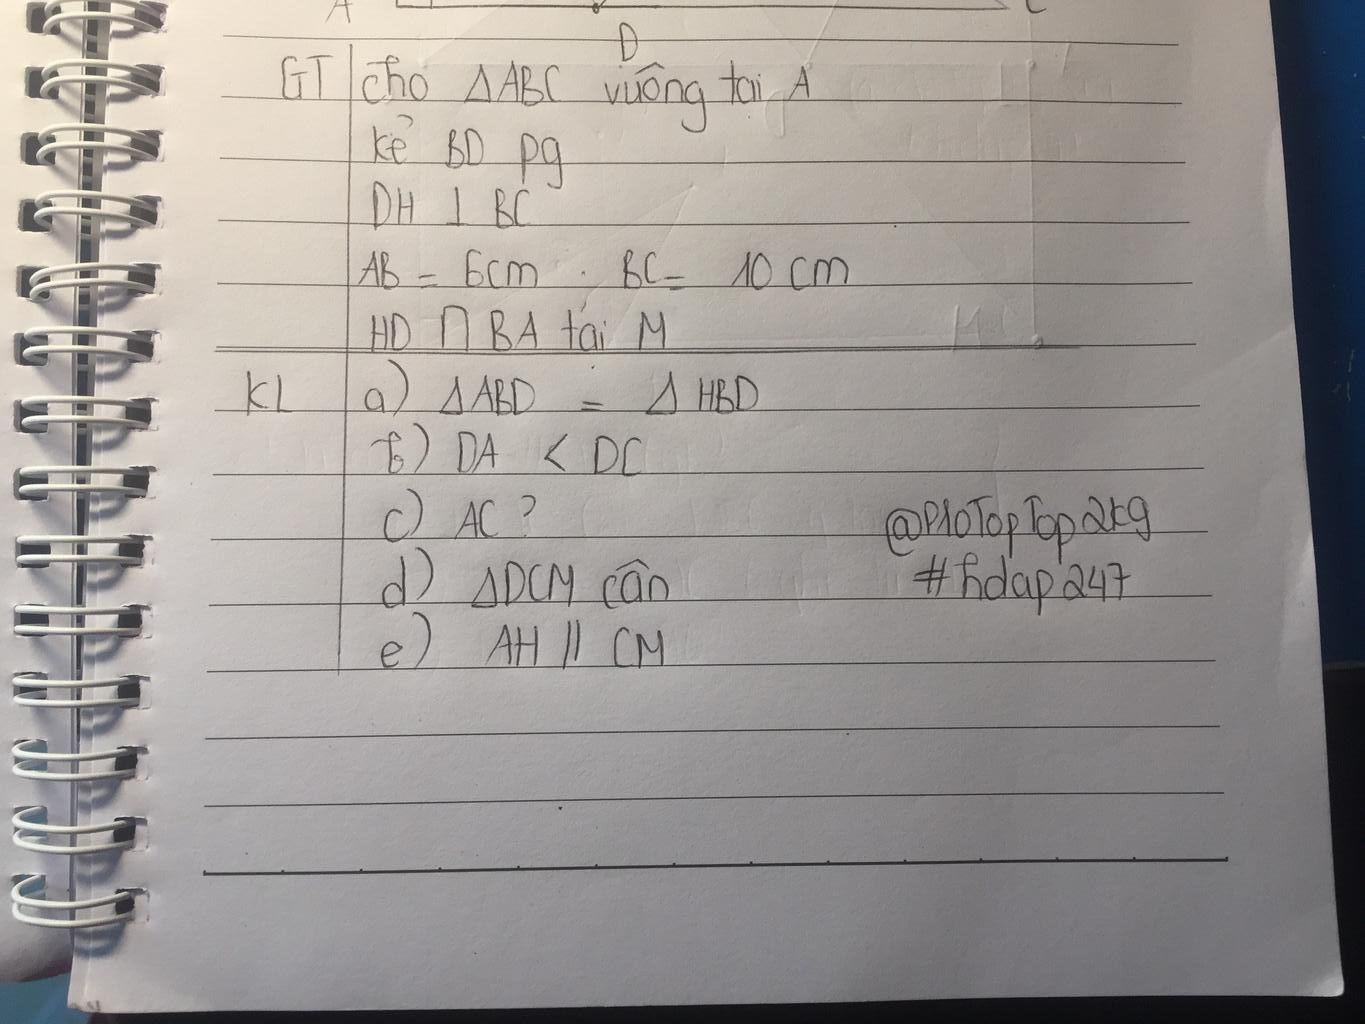 A
D
GT cho ΔABC vuông tại A
kẻ BD pg
DH ⊥ BC
AB = 6cm . BC = 10 cm
HD ∩ BA tại M
KL a) ΔABD = Δ HBD
b) DA < DC
c) AC ?
d) ΔDCM cân
e) AH // CM
@P10TopTop2k9
#hdap247